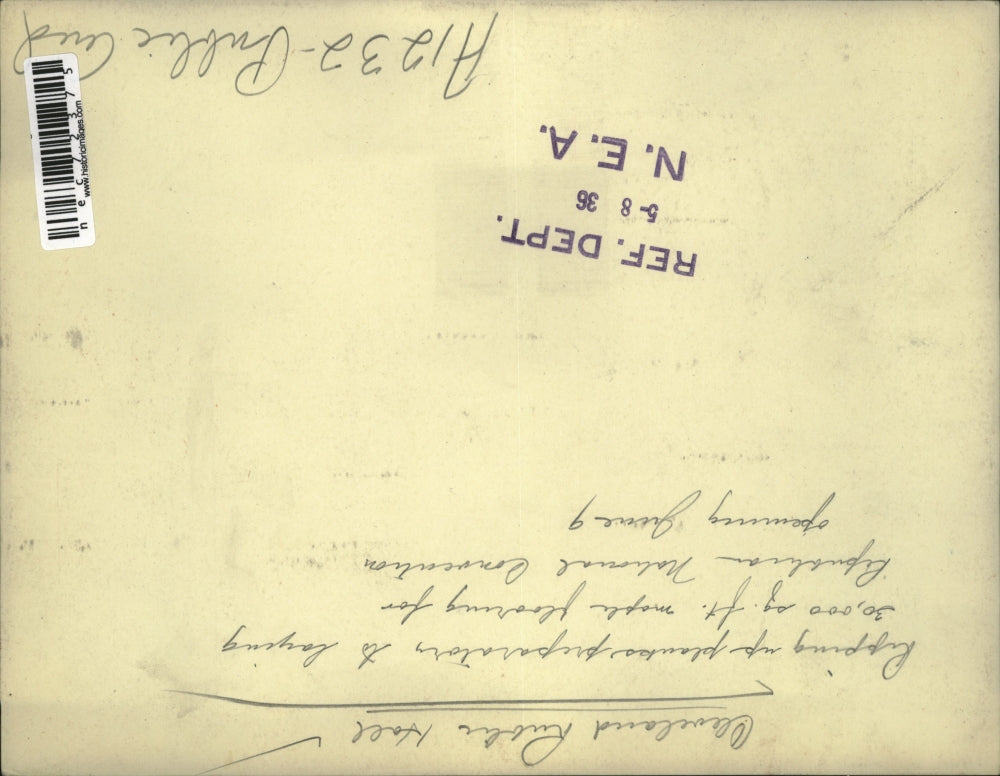 Cleveland Public Hall
Ripping up planks preparatory to laying
30,000 sq. ft. maple flooring for
Republican National Convention
opening June 9
REF. DEPT.
5-8 36
N. E. A.
A1232-Public Aud
nec72375
www.historicimages.com